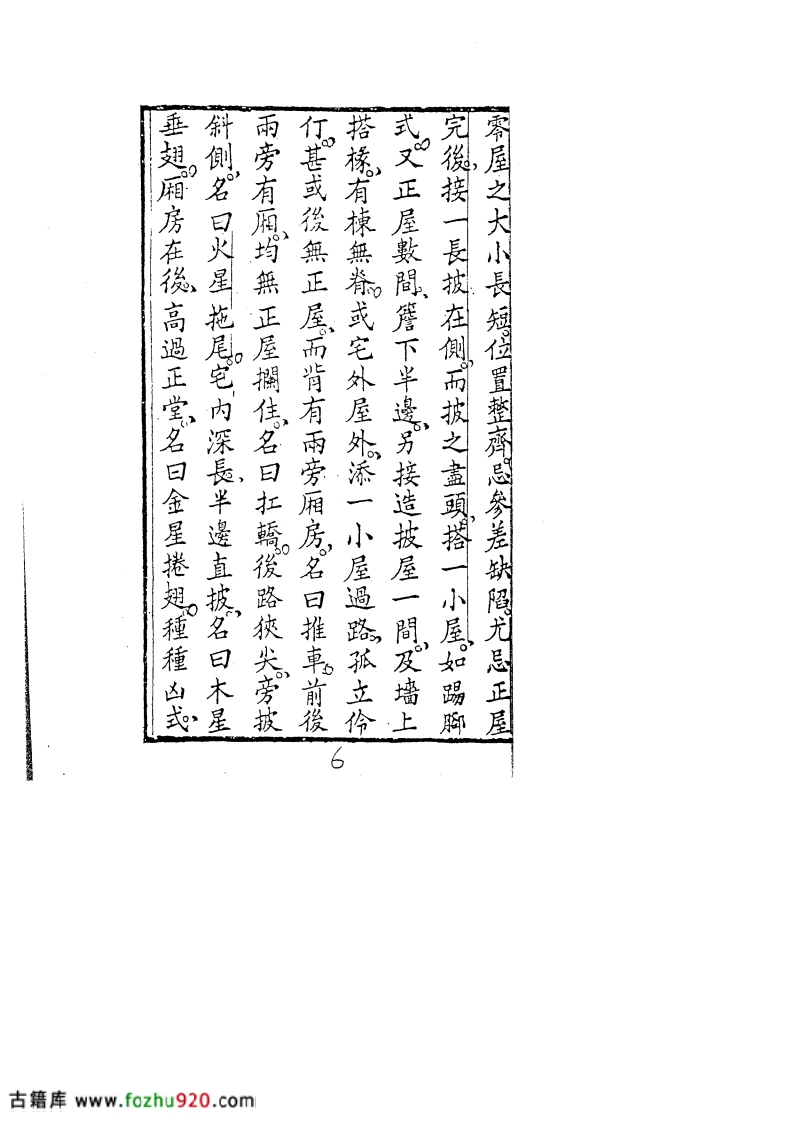 零屋之大小長短。位置整齊。忌參差缺陷。尤忌正屋
完後。接一長披在側。而披之盡頭。搭一小屋。如踢脚
式。又正屋數間、簷下半邊。另接造披屋一間。及墻上
搭椽。有棟無脊。或宅外屋外。添一小屋過路。孤立伶
仃。甚或後無正屋。而背有兩旁廂房。名曰推車。前後
兩旁有廂。均無正屋攔住。名曰扛轎。後路狹尖。旁披
斜側。名曰火星拖尾。宅內深長、半邊直披。名曰木星
垂翅。廂房在後、高過正堂。名曰金星捲翅。種種凶式、
6
古籍库 www.fozhu920.com